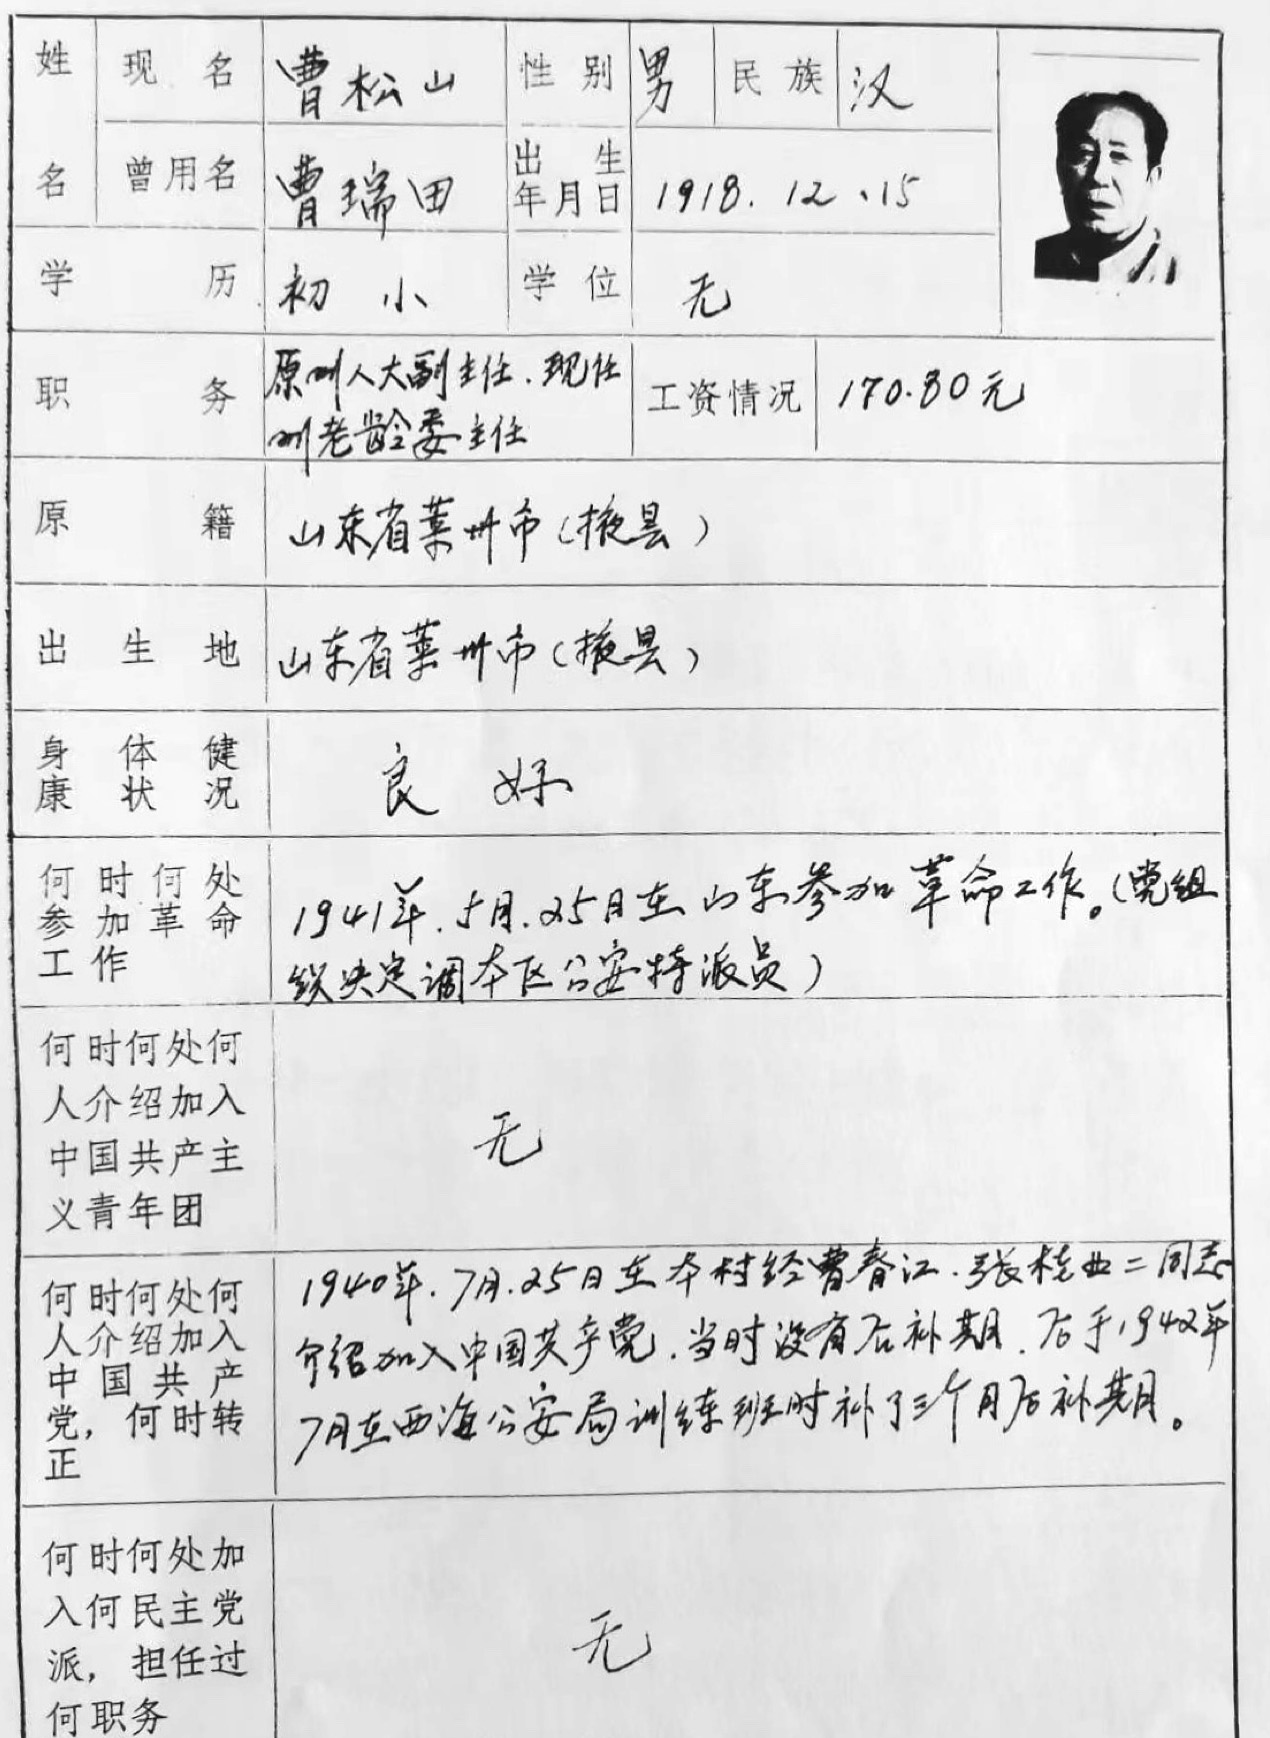 姓 现名 曹松山 性别 男 民族 汉
名 曾用名 曹瑞田 出生年月日 1918.12.15
学历 初小 学位 无
职务 原州人大副主任.现任
州老龄委主任
工资情况 170.80元
原籍 山东省莱州市(掖县)
出生地 山东省莱州市(掖县)
身体健
康状况
良好
何时何处
参加革命
工作
1941年.5月.25日在山东参加革命工作。(党组
织决定调本区公安特派员)
何时何处何
人介绍加入
中国共产主
义青年团
无
何时何处何
人介绍加入
中国共产
党，何时转
正
1940年.7月.25日在本村经曹春江.张桂业二同志
介绍加入中国共产党.当时没有后补期.后于1942年
7月在西海公安局训练班时补了三个月后补期。
何时何处加
入何民主党
派，担任过
何职务
无